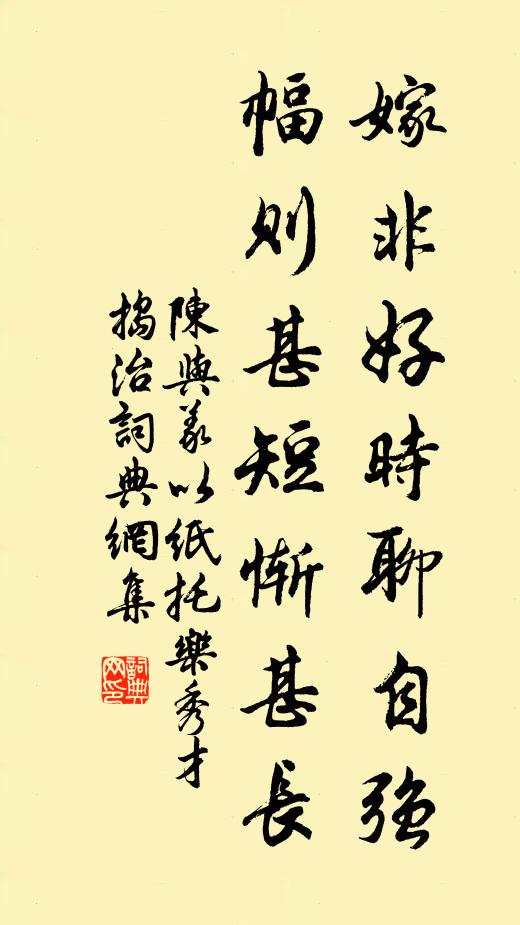 嫁非好時聊自强
幅则甚短惭甚長
陳與義以紙托樂秀才
搗治詞典網集
詞典网印